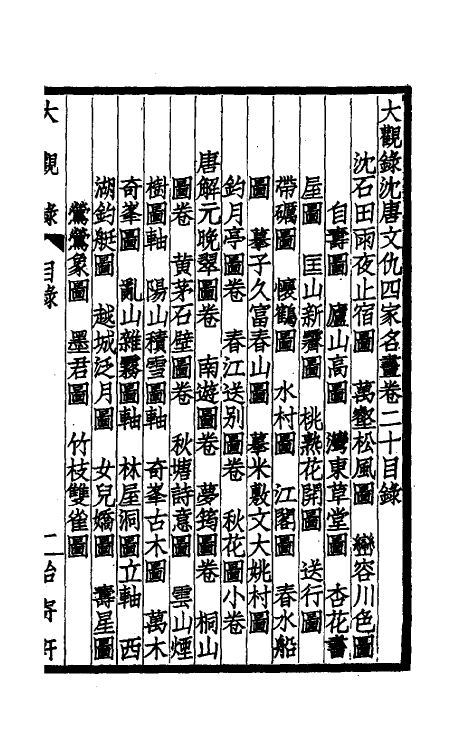 大觀錄沈唐文仇四家名畫卷二十目錄
沈石田雨夜止宿圖 萬壑松風圖 巒容川色圖
自壽圖 廬山高圖 灣東草堂圖 杏花書
屋圖 匡山新霽圖 桃熟花開圖 送行圖
帶礪圖 懷鶴圖 水村圖 江閣圖 春水船
圖 摹子久富春山圖 摹米敷文大姚村圖
釣月亭圖卷 春江送别圖卷 秋花圖小卷
唐解元晚翠圖卷 南遊圖卷 夢筠圖卷 桐山
圖卷 黄茅石壁圖卷 秋塘詩意圖 雲山煙
樹圖軸 陽山積雪圖軸 奇峯古木圖 萬木
奇峯圖 亂山雜霧圖軸 林屋洞圖立軸 西
湖釣艇圖 越城泛月圖 女兒嬌圖 壽星圖
鶯鶯象圖 墨君圖 竹枝雙雀圖
大觀錄 目錄 二